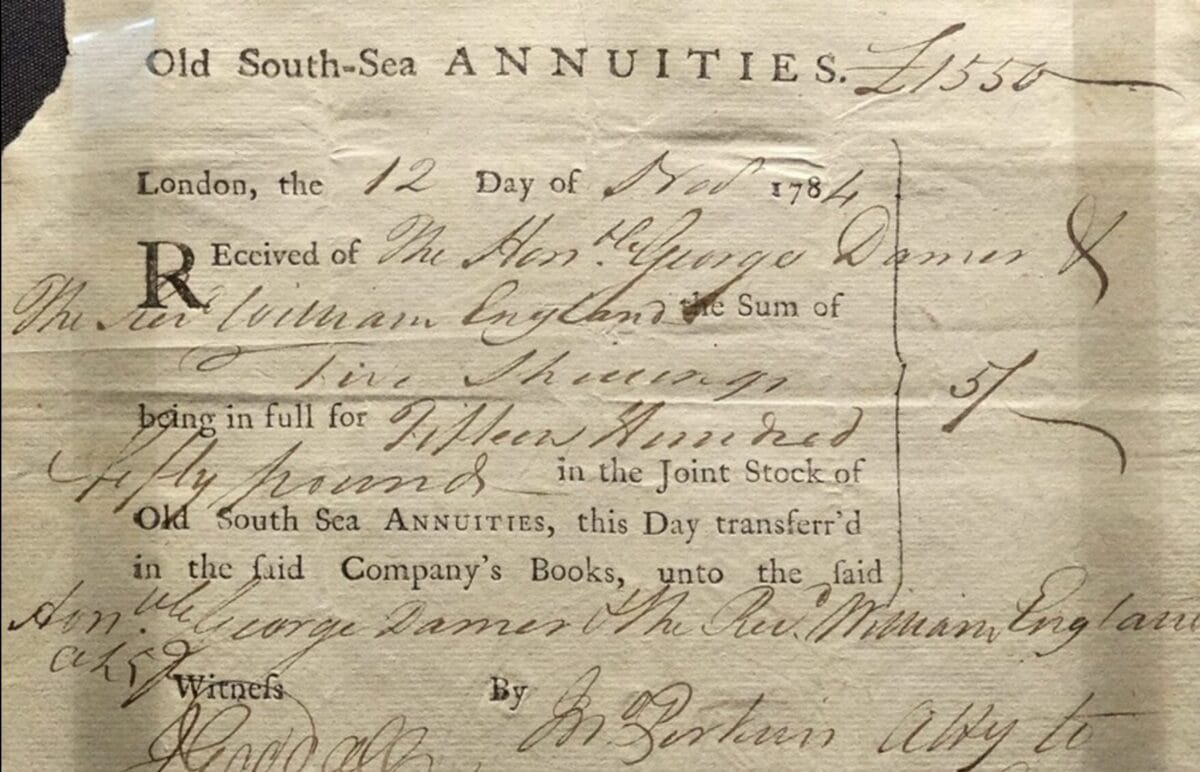 Old South-Sea ANNUITIES. £1550
London, the 12 Day of Novr 1784
REceived of The Honble. George Damer &
The Revd William England the Sum of
Five Shillings 5/
being in full for Fifteen Hundred
fifty pounds in the Joint Stock of
Old South Sea ANNUITIES, this Day transferr'd
in the ſaid Company's Books, unto the ſaid
Honble. George Damer & The Revd. William England
Witneſs By Jno Perkins Atty to
J Goodall